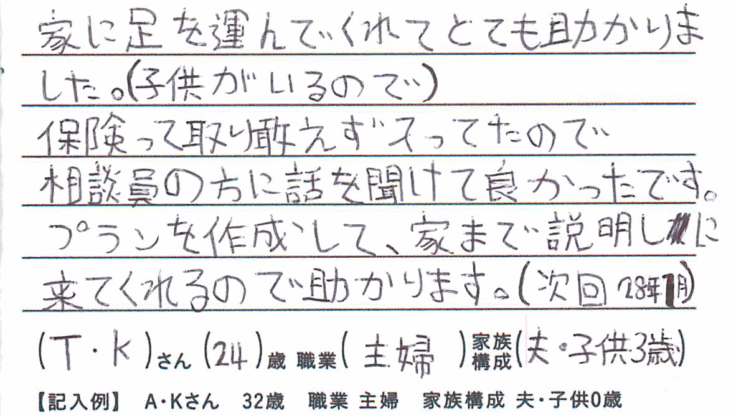 家に足を運んでくれてとても助かりま
した。(子供がいるので)
保険って取り敢えず入ってたので
相談員の方に話を聞けて良かったです。
プランを作成して、家まで説明しに
来てくれるので助かります。(次回28年1月)
(T・K)さん (24)歳 職業(主婦)家族構成(夫・子供3歳)
【記入例】 A・Kさん 32歳 職業 主婦 家族構成 夫・子供0歳